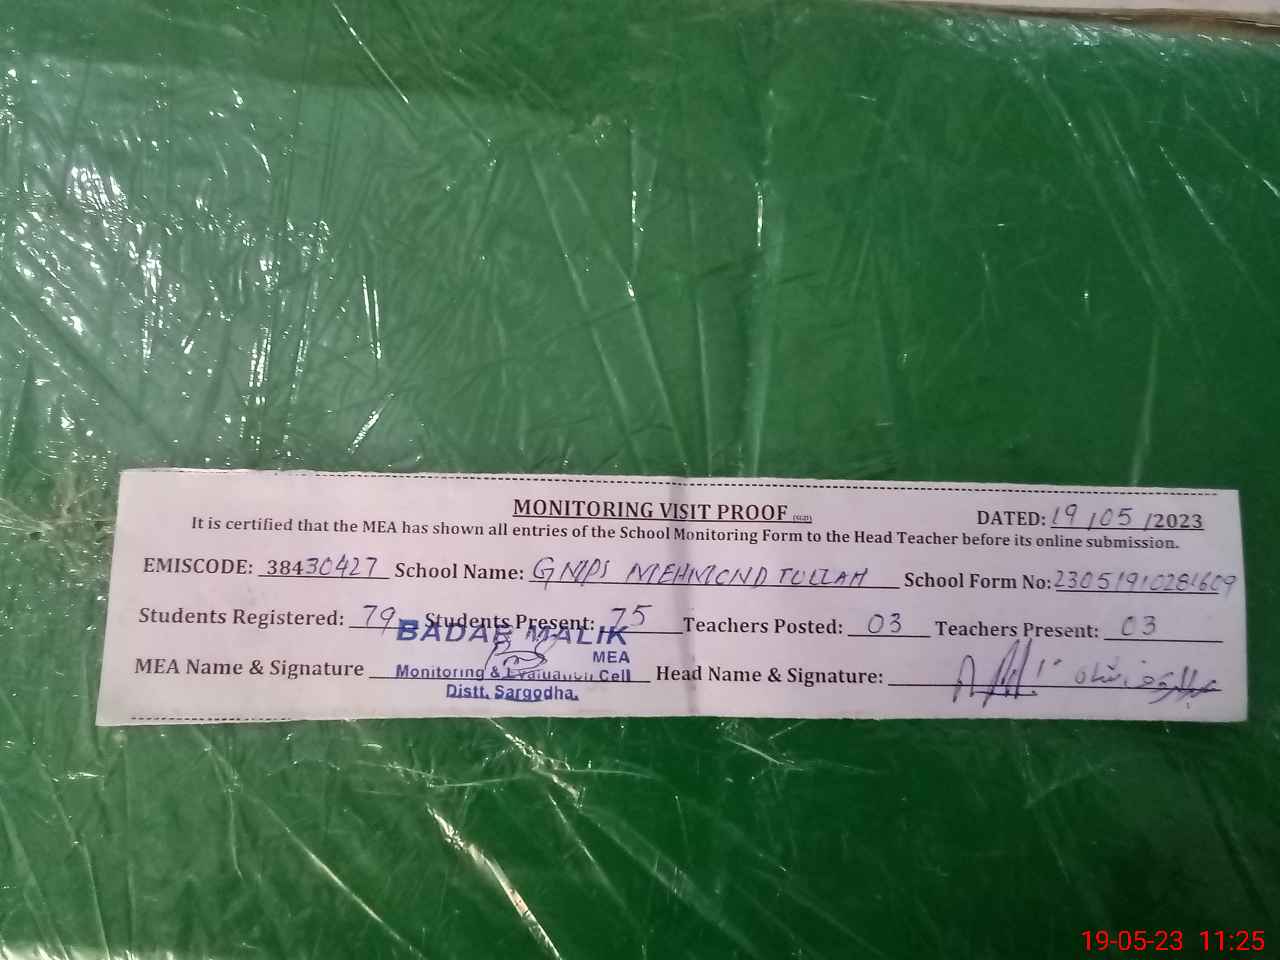 MONITORING VISIT PROOF (SGD) DATED: 19/05/2023
It is certified that the MEA has shown all entries of the School Monitoring Form to the Head Teacher before its online submission.
EMISCODE: 38430427 School Name: GMPS MEHMOND TULLAH School Form No: 23051910281609
Students Registered: 79 Students Present: 75 Teachers Posted: 03 Teachers Present: 03
BADAR MALIK
MEA
MEA Name & Signature Head Name & Signature:
Monitoring & Evaluation Cell
Distt. Sargodha.
19-05-23 11:25